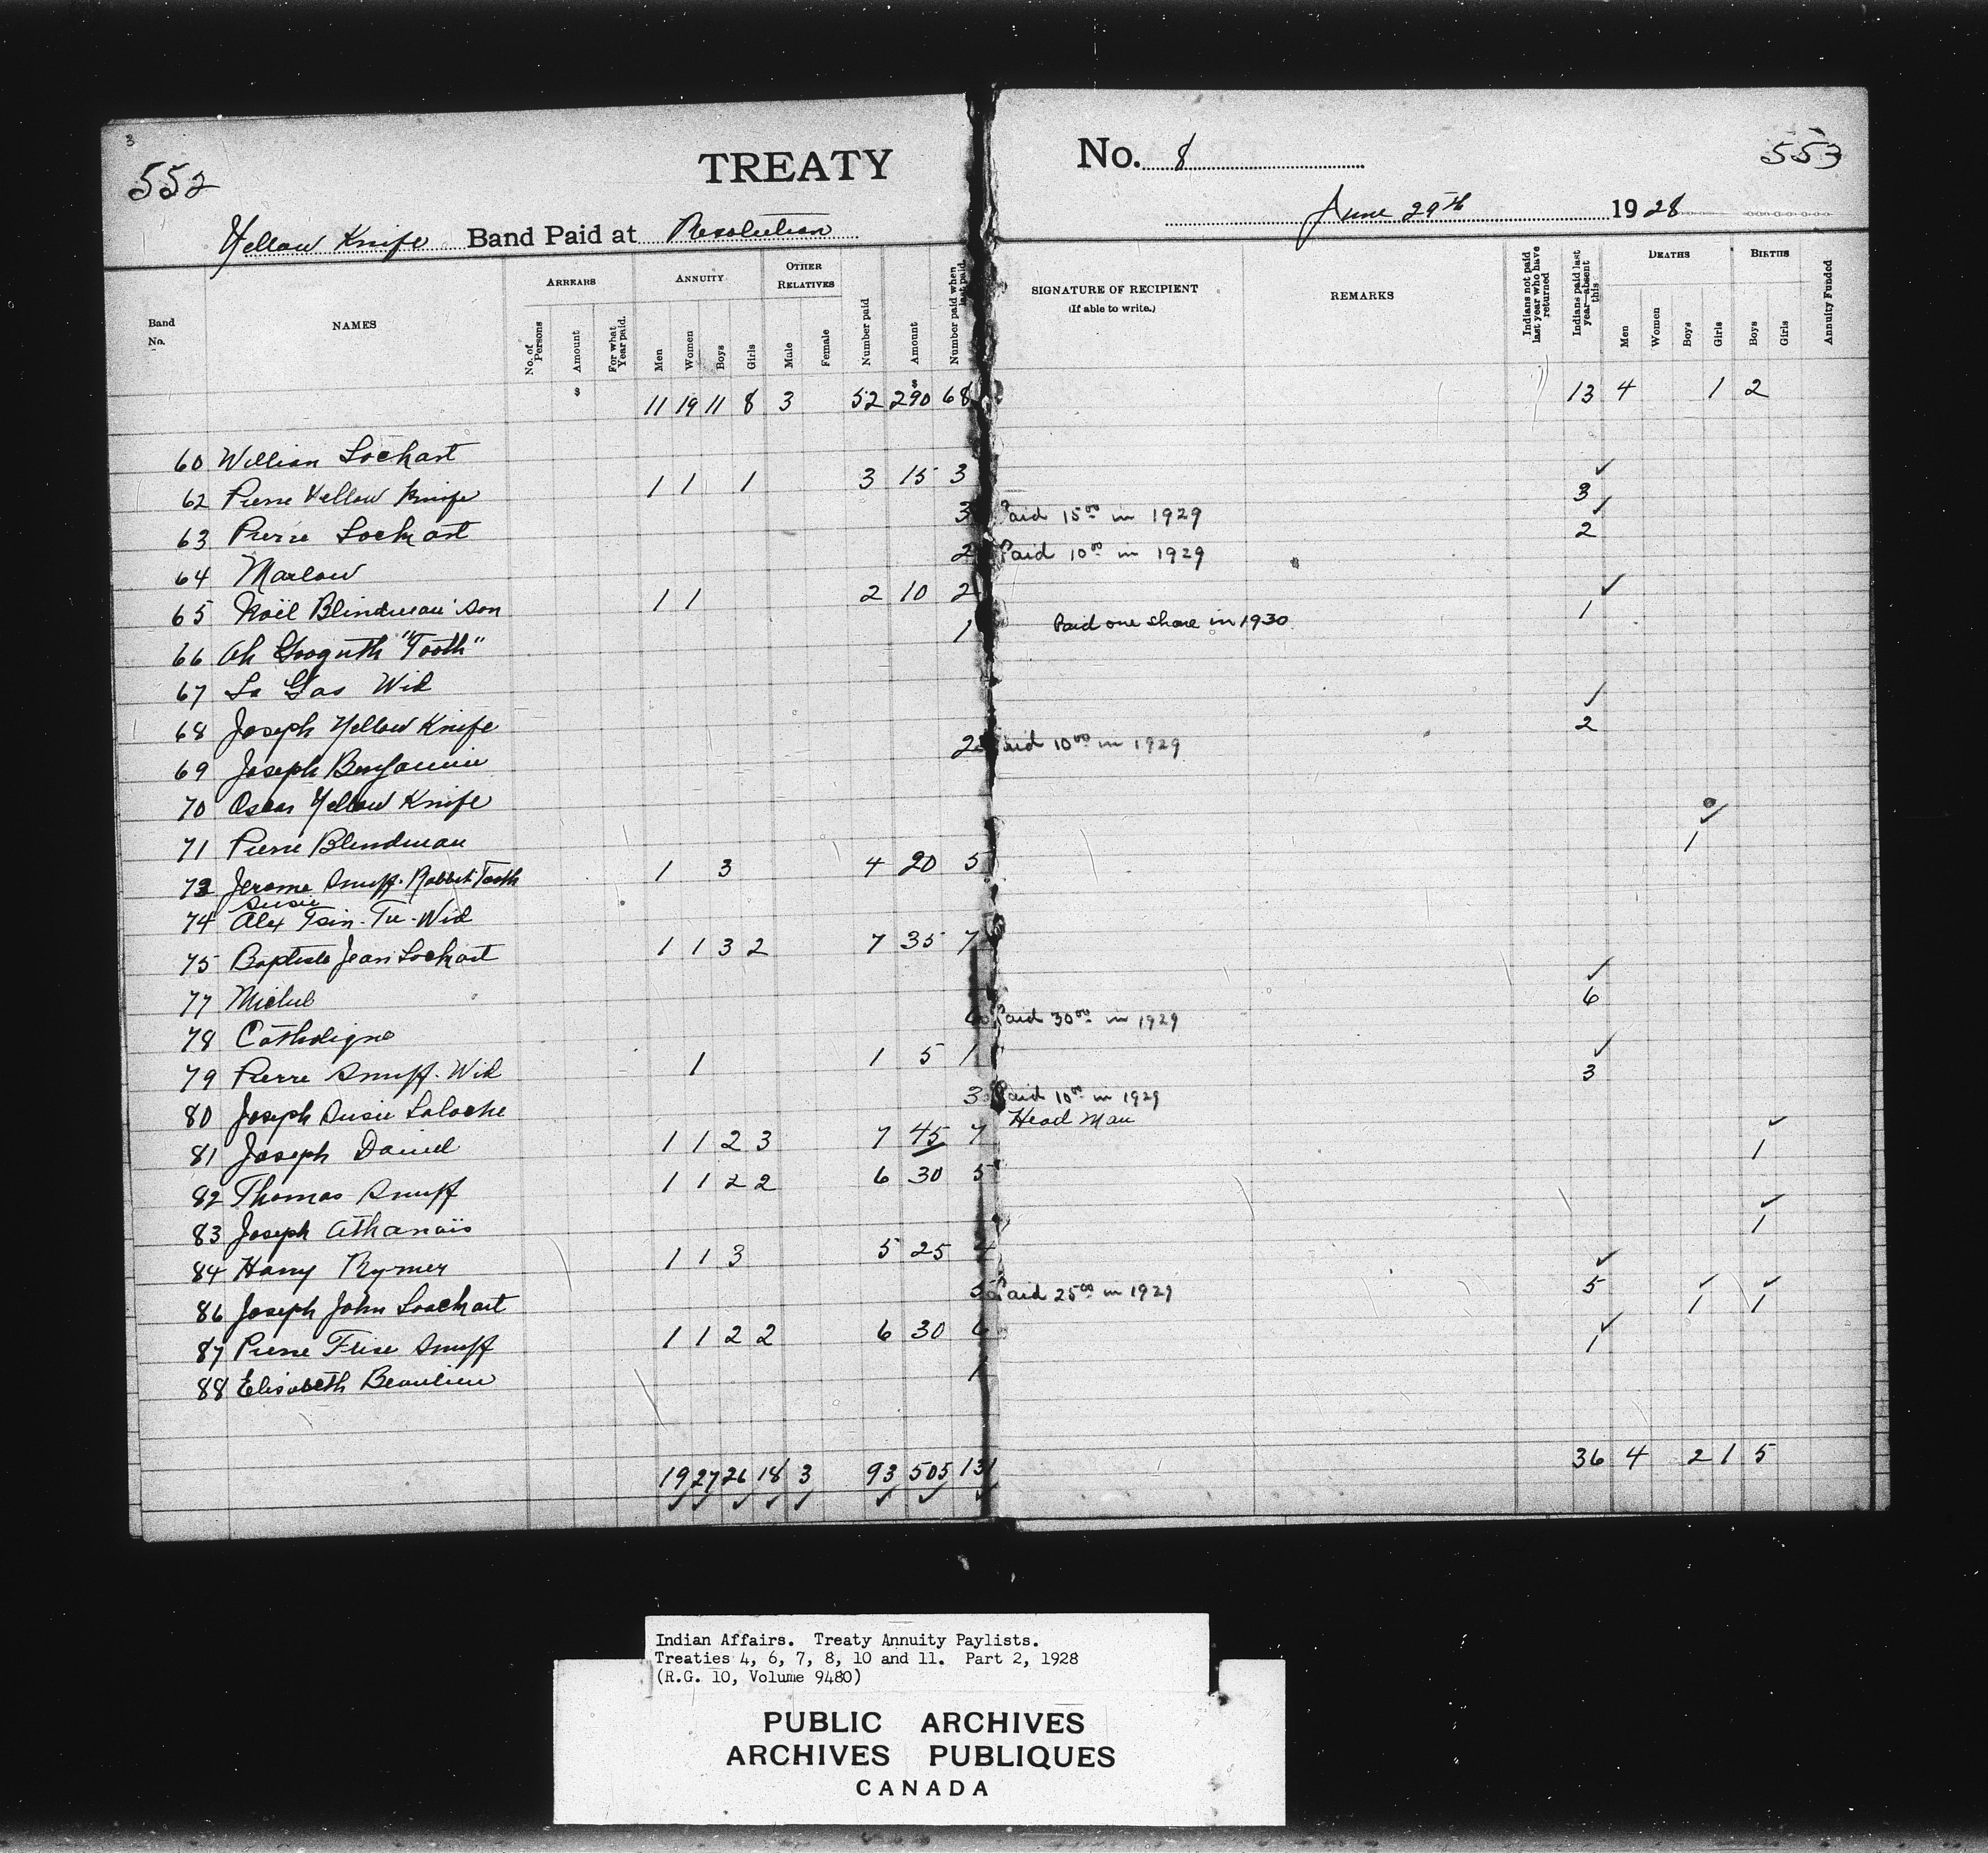 3
552
TREATY No. 8
553
Yellow Knife Band Paid at Resolution
June 29th 1928
Band No.
NAMES
ARREARS
No. of Persons
Amount
For what Year paid.
ANNUITY
Men
Women
Boys
Girls
OTHER RELATIVES
Male
Female
Number paid
Amount
Number paid when last paid.
SIGNATURE OF RECIPIENT
(If able to write.)
REMARKS
Indians not paid last year who have returned
Indians paid last year—absent this
DEATHS
Men
Women
Boys
Girls
BIRTHS
Boys
Girls
Annuity Funded
$ 11 19 11 8 3 52 $ 290 68 13 4 1 2
60 William Lockart 1 1 1 3 15 3
62 Pierre Yellow Knife 3 Paid 15 00 in 1929 ✓ 3
63 Pierre Lockart 2 Paid 10 00 in 1929 ✓ 2
64 Marlow 1 1 2 10 2
65 Noël Blindman' son 1 Paid one share in 1930 ✓ 1
66 Ah Googuth "Tooth"
67 La Gas Wid
68 Joseph Yellow Knife 2 Paid 10 00 in 1929 ✓ 2
69 Joseph Benjamin
70 Oscar Yellow Knife
71 Pierre Blindman 1 3 4 20 5 ✓ 1
73 Jerome Snuff. Rabbit Tooth
Susie
74 Alex Tsin-Tu-Wid 1 1 3 2 7 35 7
75 Baptiste Jean Lockart
77 Michel 6 Paid 30 00 in 1929 ✓ 6
78 Catholique 1 1 5 1
79 Pierre Snuff. Wid 3 Paid 10 00 in 1929 ✓ 3
80 Joseph Susie Laloche 1 1 2 3 7 45 7 Head Man
81 Joseph Daniel 1 1 2 2 6 30 5 ✓ 1
82 Thomas Snuff
83 Joseph Athanais 1 1 3 5 25 4 ✓ 1
84 Harry Rymer 5 Paid 25 00 in 1929 ✓ 5
86 Joseph John Loackart 1 1 2 2 6 30 6 ✓ 1 ✓ 1
87 Pierre Frise Snuff 1 ✓ 1
88 Elisabeth Beaulieu
19 27 26 18 3 93 505 131 36 4 2 1 5
✓ ✓ ✓ ✓ ✓ ✓ ✓ ✓
Indian Affairs. Treaty Annuity Paylists.
Treaties 4, 6, 7, 8, 10 and 11. Part 2, 1928
(R.G. 10, Volume 9480)
PUBLIC ARCHIVES
ARCHIVES PUBLIQUES
CANADA